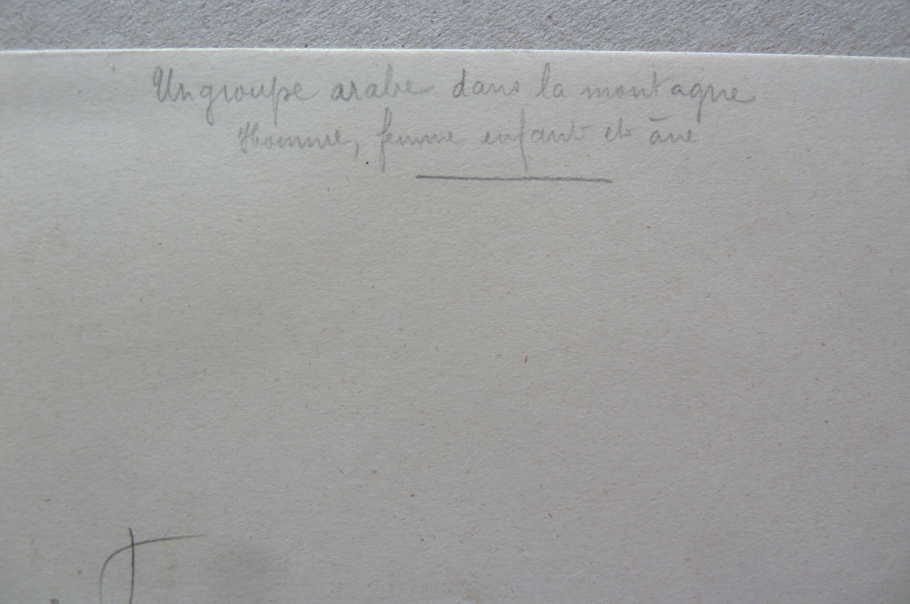 Un groupe arabe dans la montagne
Homme, femme enfant et âne